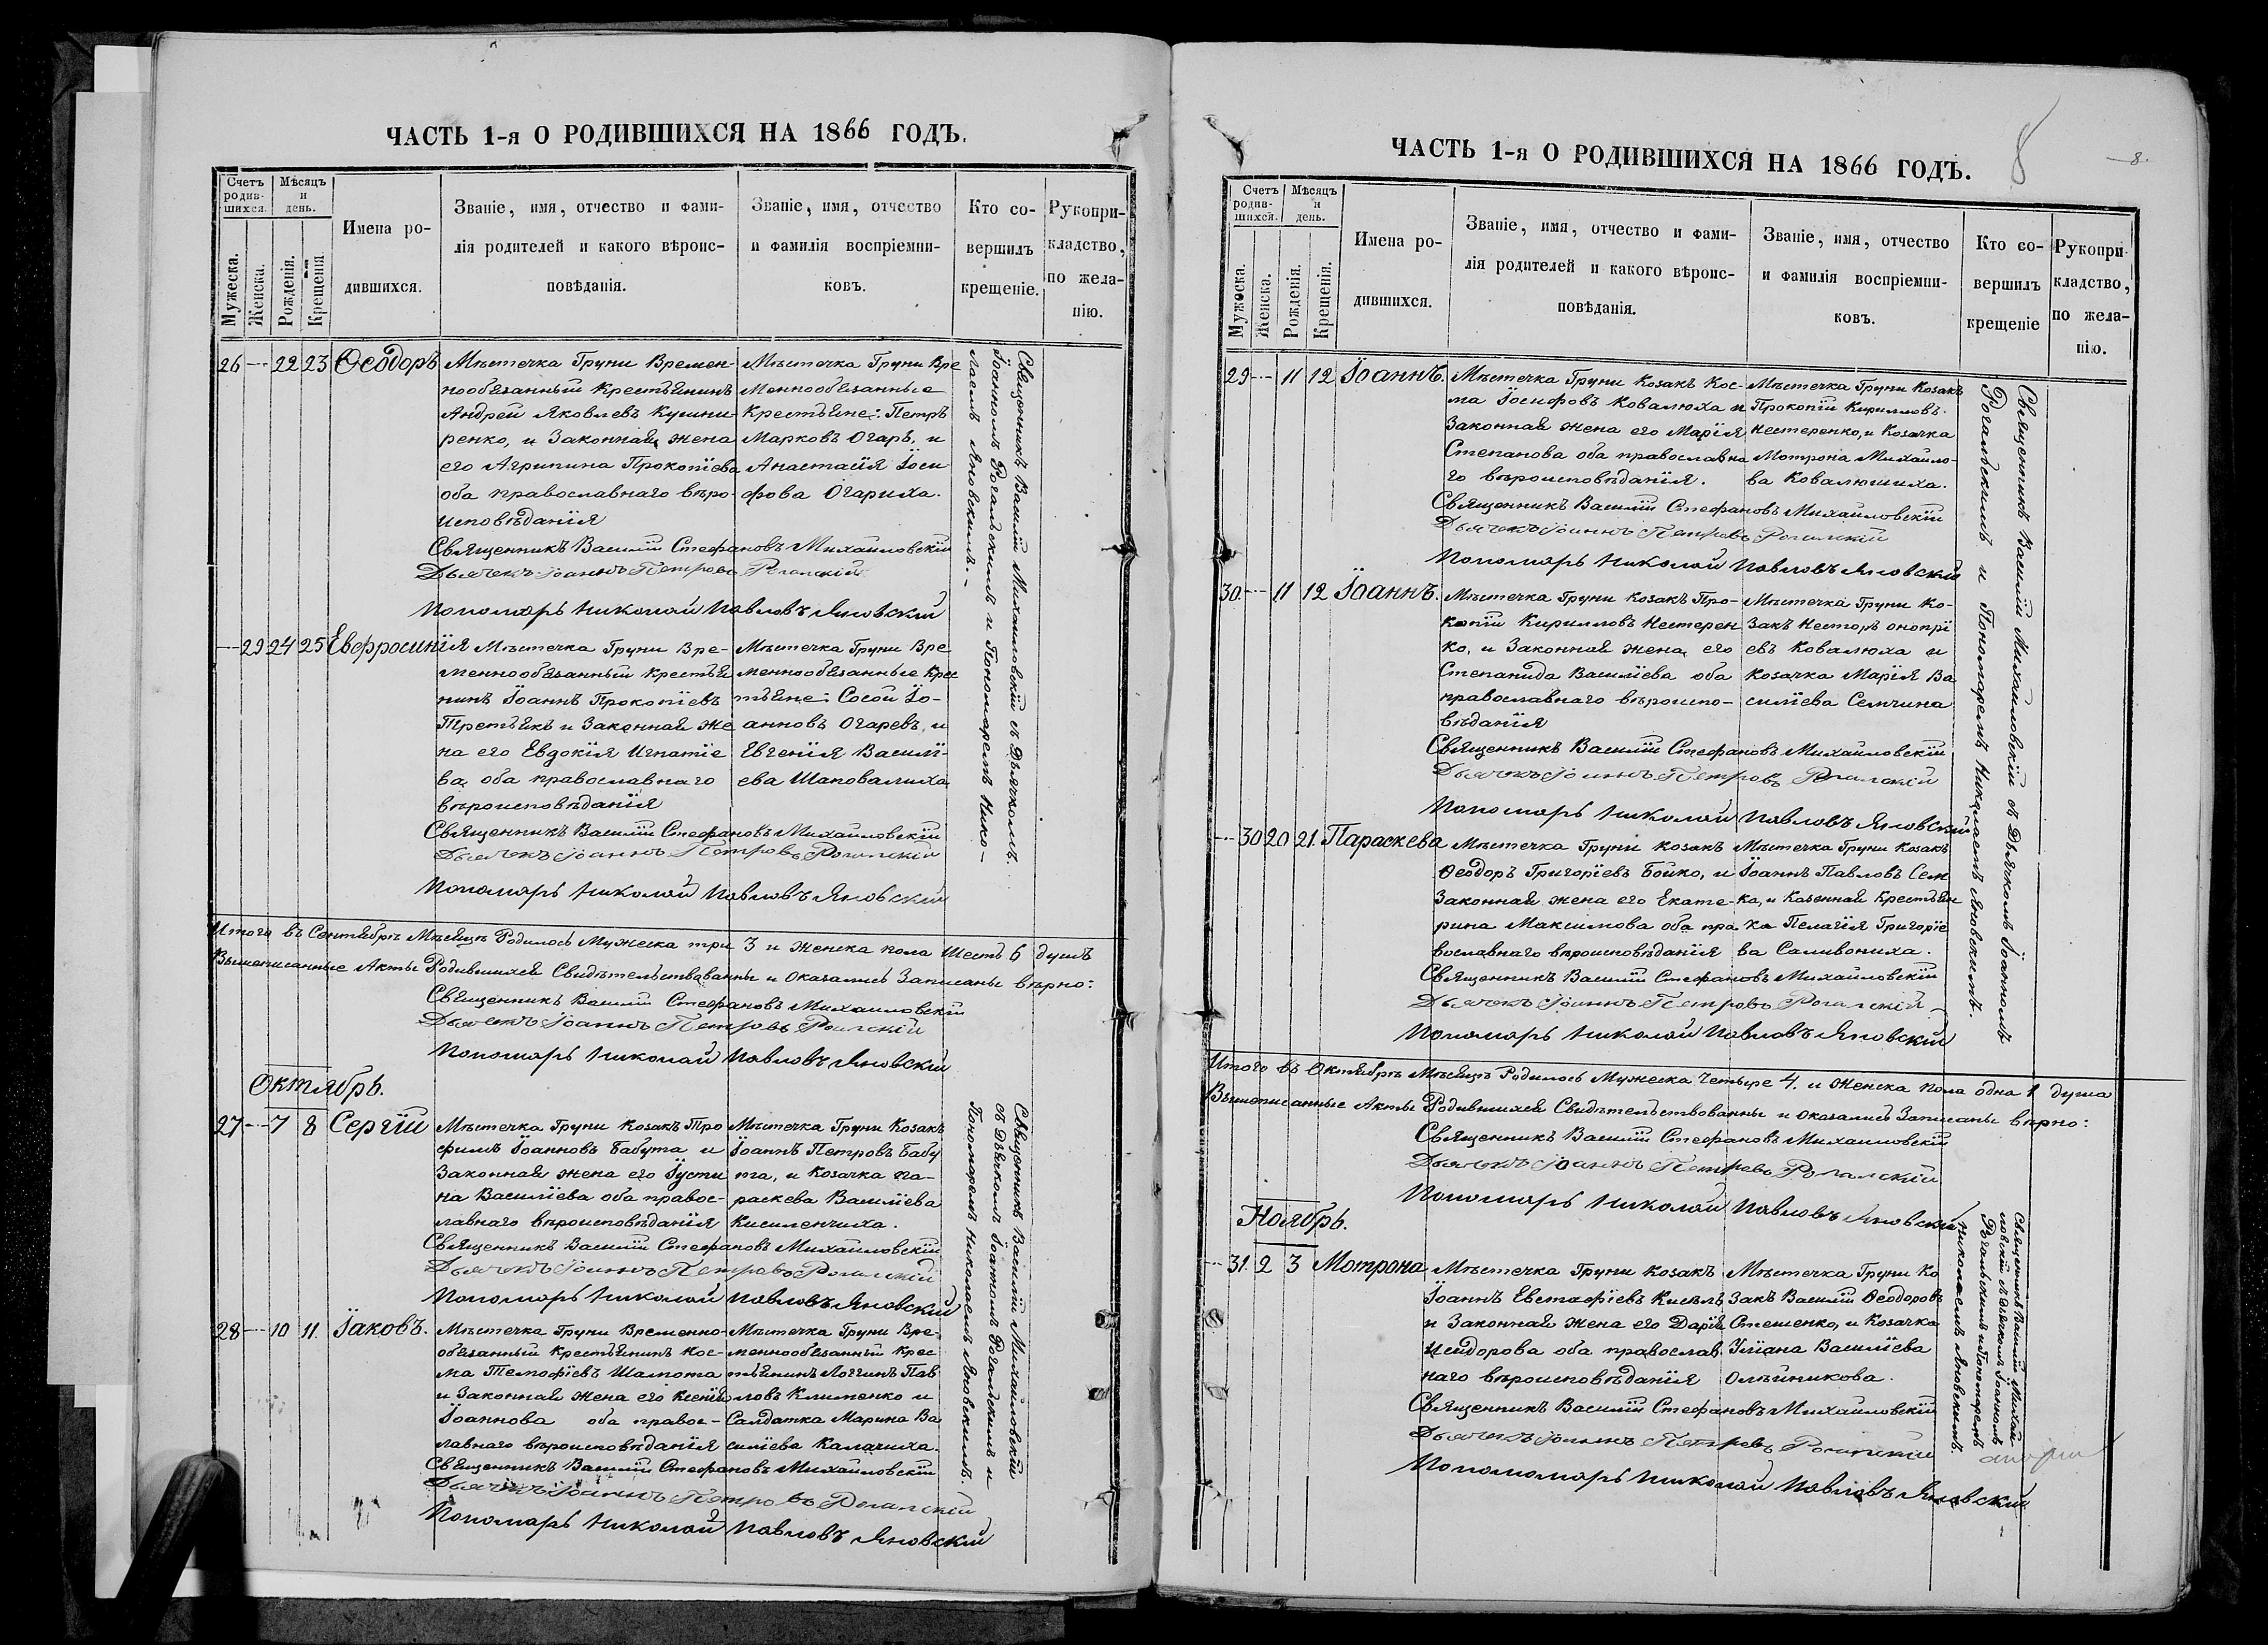 ЧАСТЬ 1-я О РОДИВШИХСЯ НА 1866 ГОДЪ.
Счетъ родив-шихся.
Мѣсяцъ и день.
Мужеска.
Женска.
Рожденія.
Крещенія.
Имена ро-
дившихся.
Званіе, имя, отчество и фами-
лія родителей и какого вѣроис-
повѣданія.
Званіе, имя, отчество
и фамилія воспріемни-
ковъ.
Кто со-
вершилъ
крещеніе.
Рукопри-
кладство,
по жела-
нію.
26 22 23 Ѳеодоръ
Мѣстечка Груни Времен-
нообязанный Крестьянинъ
Андрей Яковлевъ Кушни-
ренко, и Законная жена
его Агрипина Прокопіева
оба православнаго вѣро-
исповѣданія
Мѣстечка Груни Вре
меннообязанные
Крестьяне: Петръ
Марковъ Огарь, и
Анастасія Іоси
фова Огариха.
Священникъ Василій Стефановъ Михайловскій
Дьячекъ Іоаннъ Петровъ Рогальскій
Пономарь Николай Павловъ Яновскій
Священникъ Василій Михайловскій съ Дьячкомъ
Іоанномъ Рогальскимъ и Пономаремъ Нико-
лаемъ Яновскимъ.-
29 24 25 Евфросинія
Мѣстечка Груни Вре-
меннообязанный Крестья
нинъ Іоаннъ Прокопіевъ
Третьякъ и Законная же
на его Евдокія Игнатіе
ва, оба православнаго
вѣроисповѣданія
Мѣстечка Груни Вре
меннообязанные Крес
тьяне: Сосой Іо-
анновъ Огаревъ, и
Евгенія Василі-
ева Шаповалиха
Священникъ Василій Стефановъ Михайловскій
Дьячекъ Іоаннъ Петровъ Рогальскій
Пономарь Николай Павловъ Яновскій
Итого въ Сентябрѣ Мѣсяцѣ Родилось Мужеска три 3 и женска пола шесть 6 душъ
Вышеписанные Акты Родившихся Свидѣтельствованны и оказались Записаны вѣрно:
Священникъ Василій Стефановъ Михайловскій
Дьячекъ Іоаннъ Петровъ Рогальскій
Пономарь Николай Павловъ Яновскій
Октябрь.
27 7 8 Сергій
Мѣстечка Груни Козакъ Тро
фимъ Іоанновъ Бабута и
Законная жена его Іусти
на Василіева оба правос-
лавнаго вѣроисповѣданія
Мѣстечка Груни Козакъ
Іоаннъ Петровъ Бабу
та, и Козачка Па-
раскева Василіева
Кисиленчиха.
Священникъ Василій Стефановъ Михайловскій
Дьячекъ Іоаннъ Петровъ Рогальскій
Пономарь Николай Павловъ Яновскій
Священникъ Василій Михайловскій
съ Дьячкомъ Іоанномъ Рогальскимъ и
Пономаремъ Николаемъ Яновскимъ.
28 10 11. Іаковъ.
Мѣстечка Груни Временно-
обязанный Крестьянинъ Кос-
ма Тимофіевъ Шамота
и Законная жена его Ксенія
Іоаннова оба правос-
лавнаго вѣроисповѣданія
Мѣстечка Груни Вре-
меннообязанный Крес
тьянинъ Логгинъ Пав
ловъ Клименко и
Салдатка Марина Ва
силіева Калачиха.
Священникъ Василій Стефановъ Михайловскій
Дьячекъ Іоаннъ Петровъ Рогальскій
Пономарь Николай Павловъ Яновскій
ЧАСТЬ 1-я О РОДИВШИХСЯ НА 1866 ГОДЪ.
8
8.
Счетъ родив-шихся.
Мѣсяцъ и день.
Мужеска.
Женска.
Рожденія.
Крещенія.
Имена ро-
дившихся.
Званіе, имя, отчество и фами-
лія родителей и какого вѣроис-
повѣданія.
Званіе, имя, отчество
и фамилія воспріемни-
ковъ.
Кто со-
вершилъ
крещеніе
Рукопри-
кладство,
по жела-
нію.
29 11 12 Іоаннъ.
Мѣстечка Груни Козакъ Кос-
ма Іосифовъ Ковалюха и
Законная жена его Марія
Степанова оба православна
го вѣроисповѣданія.
Мѣстечка Груни Козакъ
Прокопій Кирилловъ
Нестеренко, и Козачка
Мотрона Михайло-
ва Ковалюшиха.
Священникъ Василій Стефановъ Михайловскій
Дьячекъ Іоаннъ Петровъ Рогальскій
Пономарь Николай Павловъ Яновскій
Священникъ Василій Михайловскій съ Дьячкомъ Іоанномъ
Рогальскимъ и Пономаремъ Николаемъ Яновскимъ.
30. 11 12 Іоаннъ.
Мѣстечка Груни Козакъ Про-
копій Кирилловъ Нестерен
ко, и Законная жена его
Степанида Василіева оба
православнаго вѣроиспо-
вѣданія
Мѣстечка Груни Ко-
закъ Несторъ Онопрі
евъ Ковалюха и
Козачка Марія Ва
силіева Семчина
Священникъ Василій Стефановъ Михайловскій
Дьячекъ Іоаннъ Петровъ Рогальскій
Пономарь Николай Павловъ Яновскій
30 20 21. Параскева
Мѣстечка Груни Козакъ
Ѳеодоръ Григоріевъ Бойко, и
Законная жена его Екате-
рина Максимова оба пра
вославнаго вѣроисповѣданія
Мѣстечка Груни Козакъ
Іоаннъ Павловъ Сем
ка, и Казенная Крестьян
ка Пелагія Григоріе
ва Саливониха.
Священникъ Василій Стефановъ Михайловскій
Дьячекъ Іоаннъ Петровъ Рогальскій
Пономарь Николай Павловъ Яновскій
Итого въ Октябрѣ Мѣсяцѣ Родилось Мужеска Четыре 4. и Женска пола одна 1 душа
Вышеписанные Акты Родившихся Свидѣтельствованны и оказались Записаны вѣрно:
Священникъ Василій Стефановъ Михайловскій
Дьячекъ Іоаннъ Петровъ Рогальскій
Пономарь Николай Павловъ Яновскій
Ноябрь.
31. 2 3 Мотрона
Мѣстечка Груни Козакъ
Іоаннъ Евстафіевъ Кисѣль
и Законная жена его Дарія
Исидорова оба православ
наго вѣроисповѣданія
Мѣстечка Груни Ко
закъ Василій Ѳеодоровъ
Стешенко, и Козачка
Уліана Василіева
Олѣйникова.
Священникъ Василій Стефановъ Михайловскій
Дьячекъ Іоаннъ Петровъ Рогальскій
Пономарь Николай Павловъ Яновскій
Священникъ Василій Михай-
ловскій съ Дьячкомъ Іоанномъ
Рогальскимъ и Пономаремъ
Николаемъ Яновскимъ.